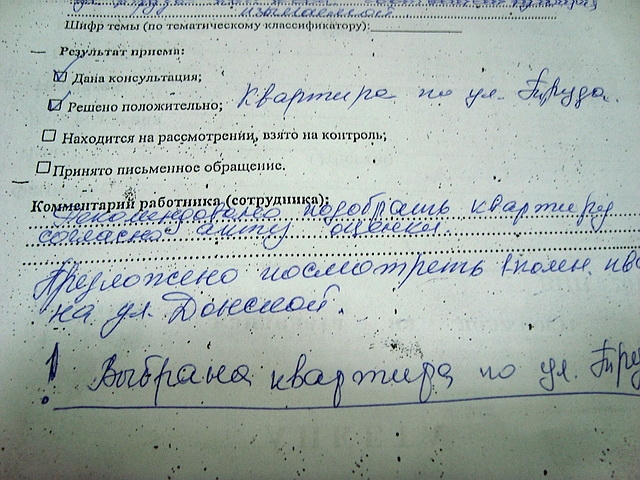 Шифр темы (по тематическому классификатору):
Результат приема:
Дана консультация;
Решено положительно; Квартира по ул. Труда.
Находится на рассмотрении, взято на контроль;
Принято письменное обращение.
Комментарий работника (сотрудника):
Рекомендовано подобрать квартиру
согласно акту оценки.
Предложено посмотреть 1 комн. кв
на ул. Донской.
! Выбрана квартира по ул. Тру